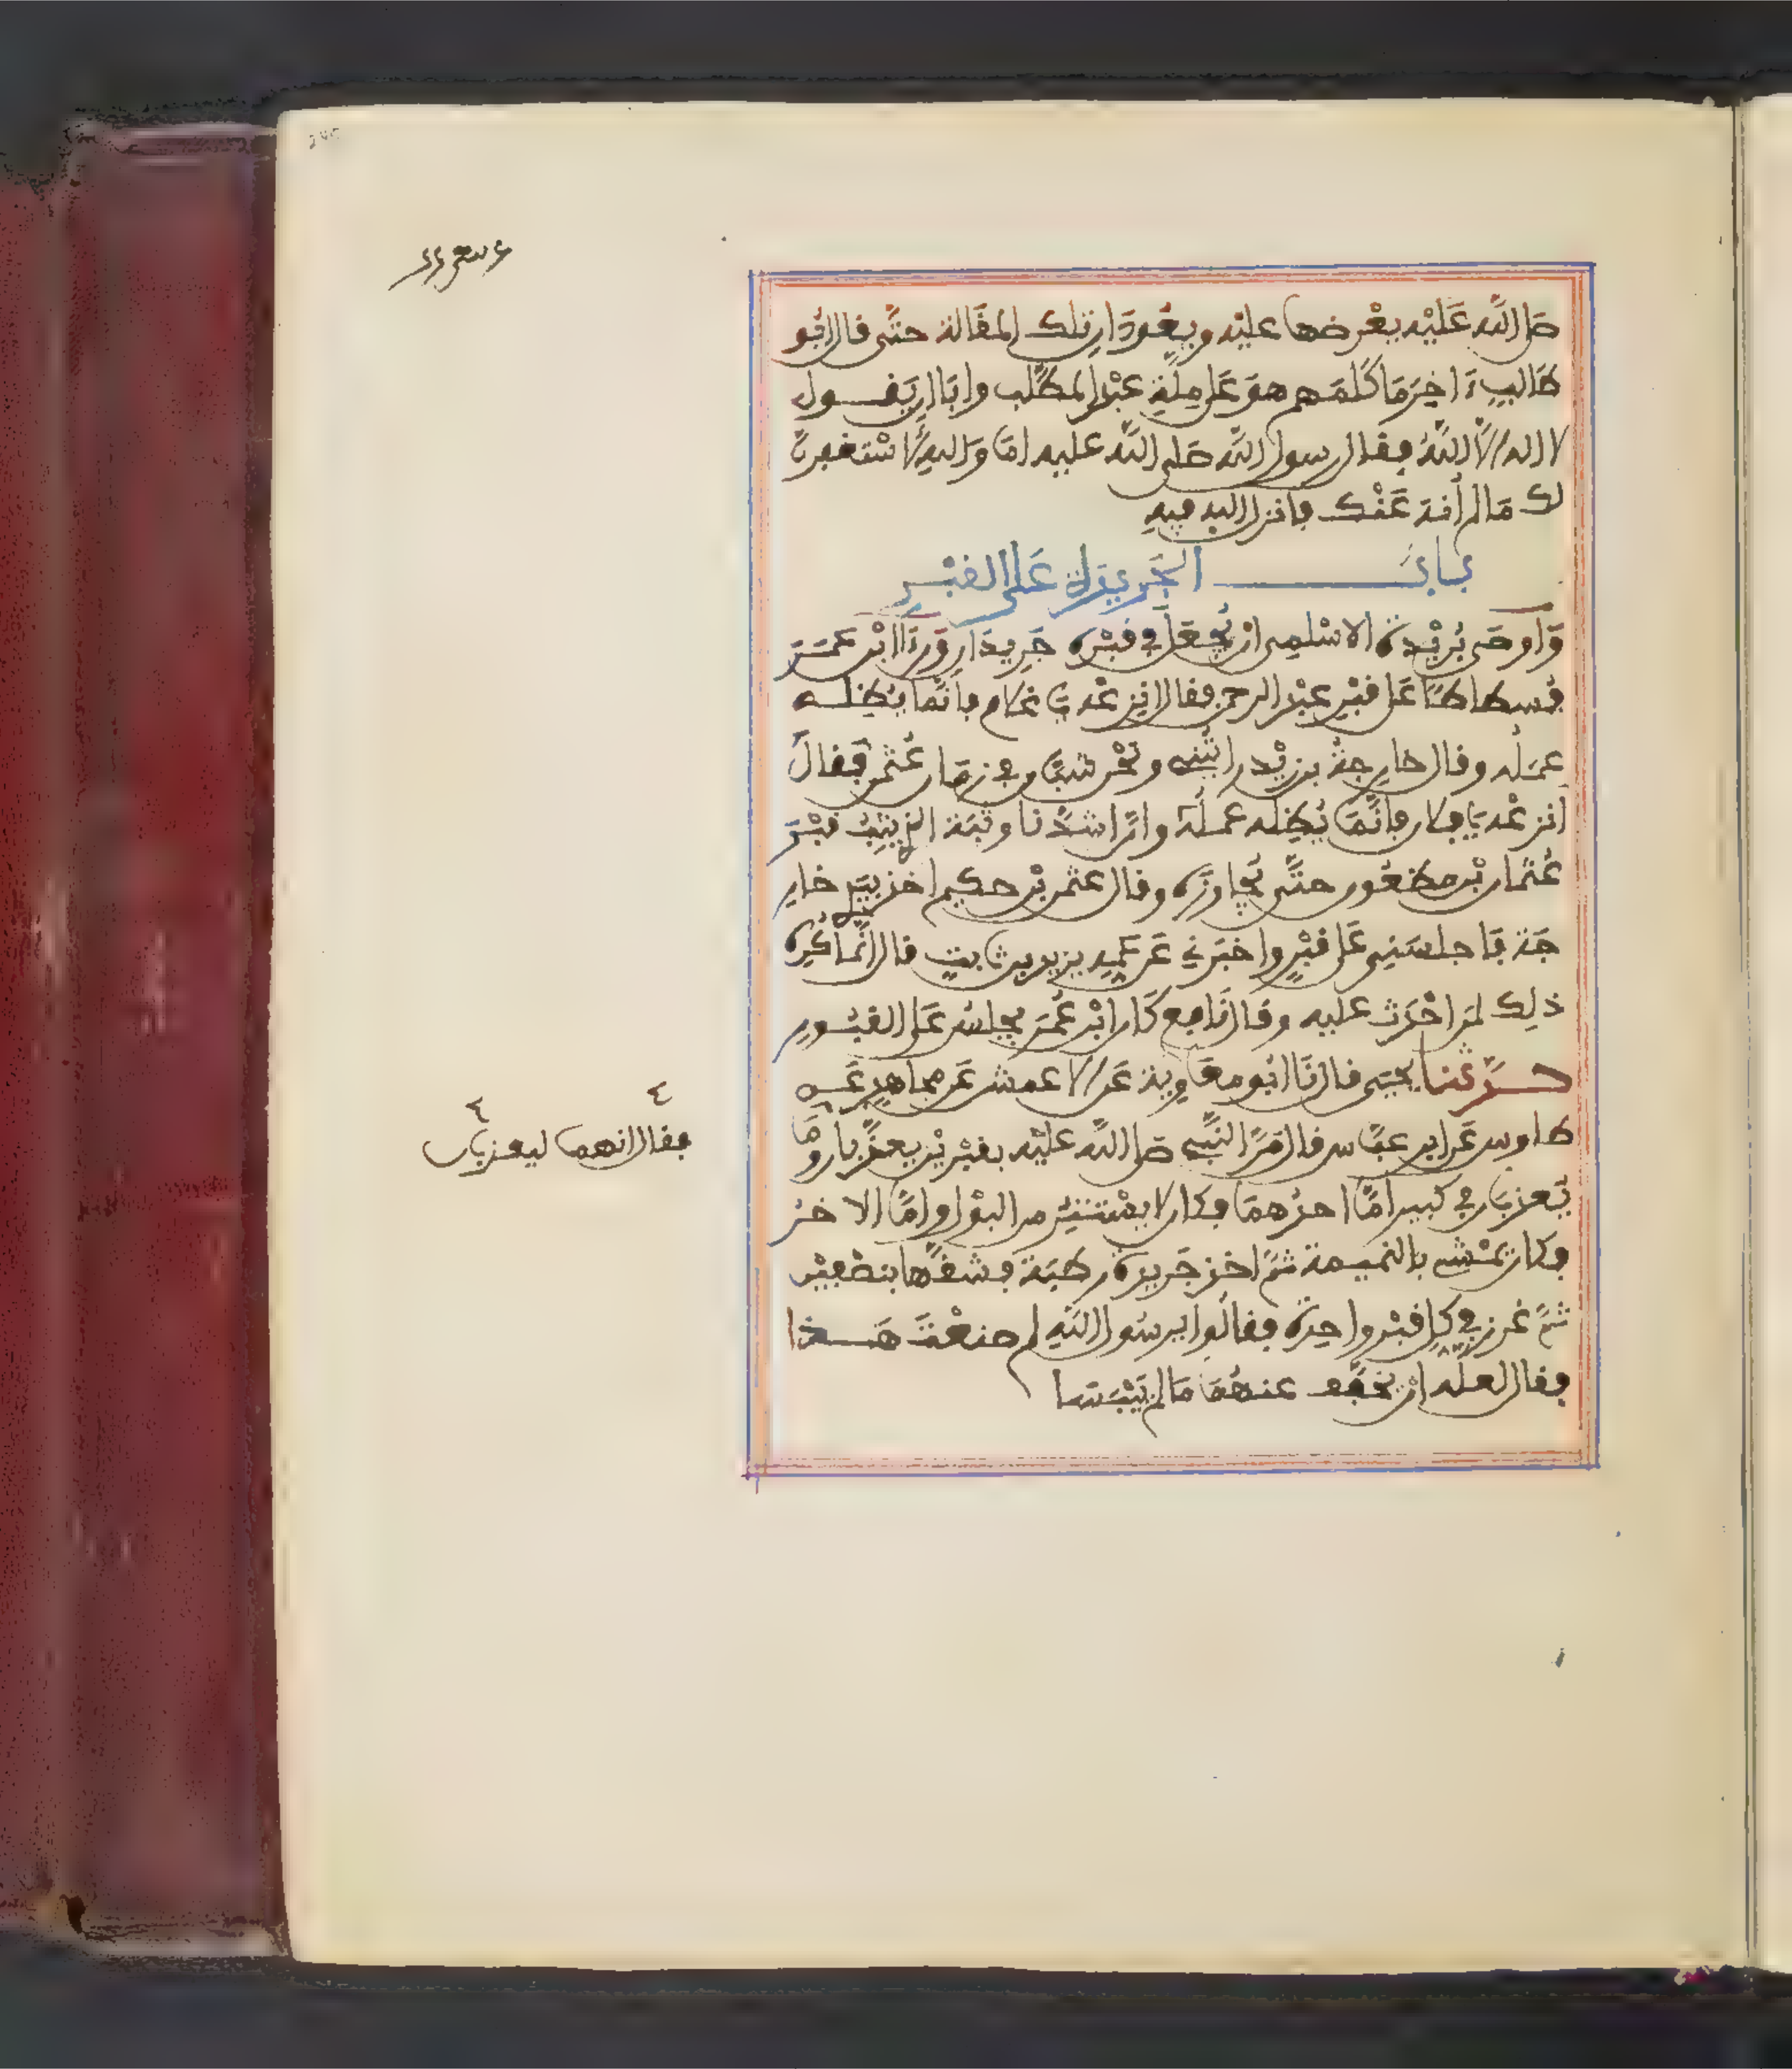 صلى الله عَلَيْه يعْرضها عليْه ويعُودَانِ بتلك المقَالة حتَّى قال ابُو
طَالبٍ ءَاخِرَ مَا كَلَّمَهم هوَ عَلى مِلَّةِ عبْد المطَّلب وابَا ان يَقــول
لا اله الاَّ اللَّهُ فقال رسول اللَّه صَلى اللَّه عليه امَا وَاللهِ لاسْتغفرنَّ
لك مَا لم أُنهَ عَنْك فانزل الله فيهِ
بــابُ الجَريدة عَلى القبْــر
وَاوصَى بُرَيْدة الاسْلمِى ان يُجْعَل في قبْره جَرِيدَان وَرَءَا ابْن عمَــرَ
فُسطاطًا عَلى قبْرِ عبْد الرحمن فقال انزعْه يَا غلام فإنَّمَا يُظِلــه
عملُه وقال خارجةُ بن زيْد رايْتُنِى ونحْن شبَّان في زمَان عُثمٰن فقَالَ
انزعْه يَا غلام فإنَّمَا يُظِله عملُهُ وانَّ اشدَّنا وثبَة الذِي يَثِبُ قبْرَ
عُثمَان بْن مظعُون حتَّى يُجَاوزَه وقال عثمٰن بْن حكيم اخذ بيَدِي خَارِ
جَة فَاجلسَنِى عَلى قبْرٍ واخبَرني عَن عَمِّه يزيد بن ثابتٍ قال انَّما كُرِه
ذلِك لمَن احْدَث عليه وقال نَافِع كَان ابْن عُمَر يجلسُ عَلى القبُــورِ
حــدَّثنا يحيَى قال نَا ابُو معَاوِية عَن الاعمش عَن مجاهِدٍ عَــن
طاوس عَن ابن عبَّاس قال مَرَّ النَّبِى صَلى اللَّه عليْه بقبْرَيْن يعذَّبان ومَا
يُعذبَان في كبير امَّا احدُهمَا فكان لا يسْتتِرُ من البوْل وامَّا الاخرُ
فكان يَمْشى بالنميمة ثمَّ اخذ جَريدَة رطبَة فشقَّها بنصْفيْن
ثمَّ غرز في كلِ قبْر واحِدَة فقالُوا يرسُول اللَّهِ لم صنعْتَ هَــذا
فقال لعله انْ يخفَّف عنهُمَا مَا لم يَيْبَسَا
فقال انهما ليعذبان